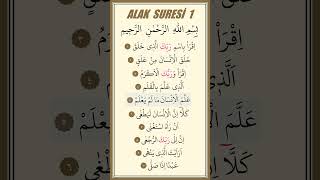 ALAK SURESİ 1
بِسْمِ اللهِ الرَّحْمٰنِ الرَّحِيمِ
اِقْرَأْ بِاسْمِ رَبِّكَ الَّذِى خَلَقَ
خَلَقَ الْاِنْسَانَ مِنْ عَلَقٍ
اِقْرَأْ وَرَبُّكَ الْاَكْرَمُ
اَلَّذِى عَلَّمَ بِالْقَلَمِ
عَلَّمَ الْاِنْسَانَ مَا لَمْ يَعْلَمْ
كَلَّا اِنَّ الْاِنْسَانَ لَيَطْغٰى
اَنْ رَاٰهُ اسْتَغْنٰى
اِنَّ اِلٰى رَبِّكَ الرُّجْعٰى
اَرَاَيْتَ الَّذِى يَنْهٰى
عَبْدًا اِذَا صَلّٰى